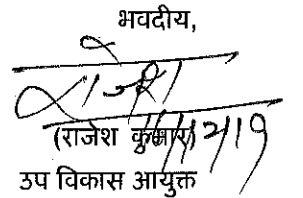 भवदीय,
राजेश
(राजेश कुमार)
उप विकास आयुक्त